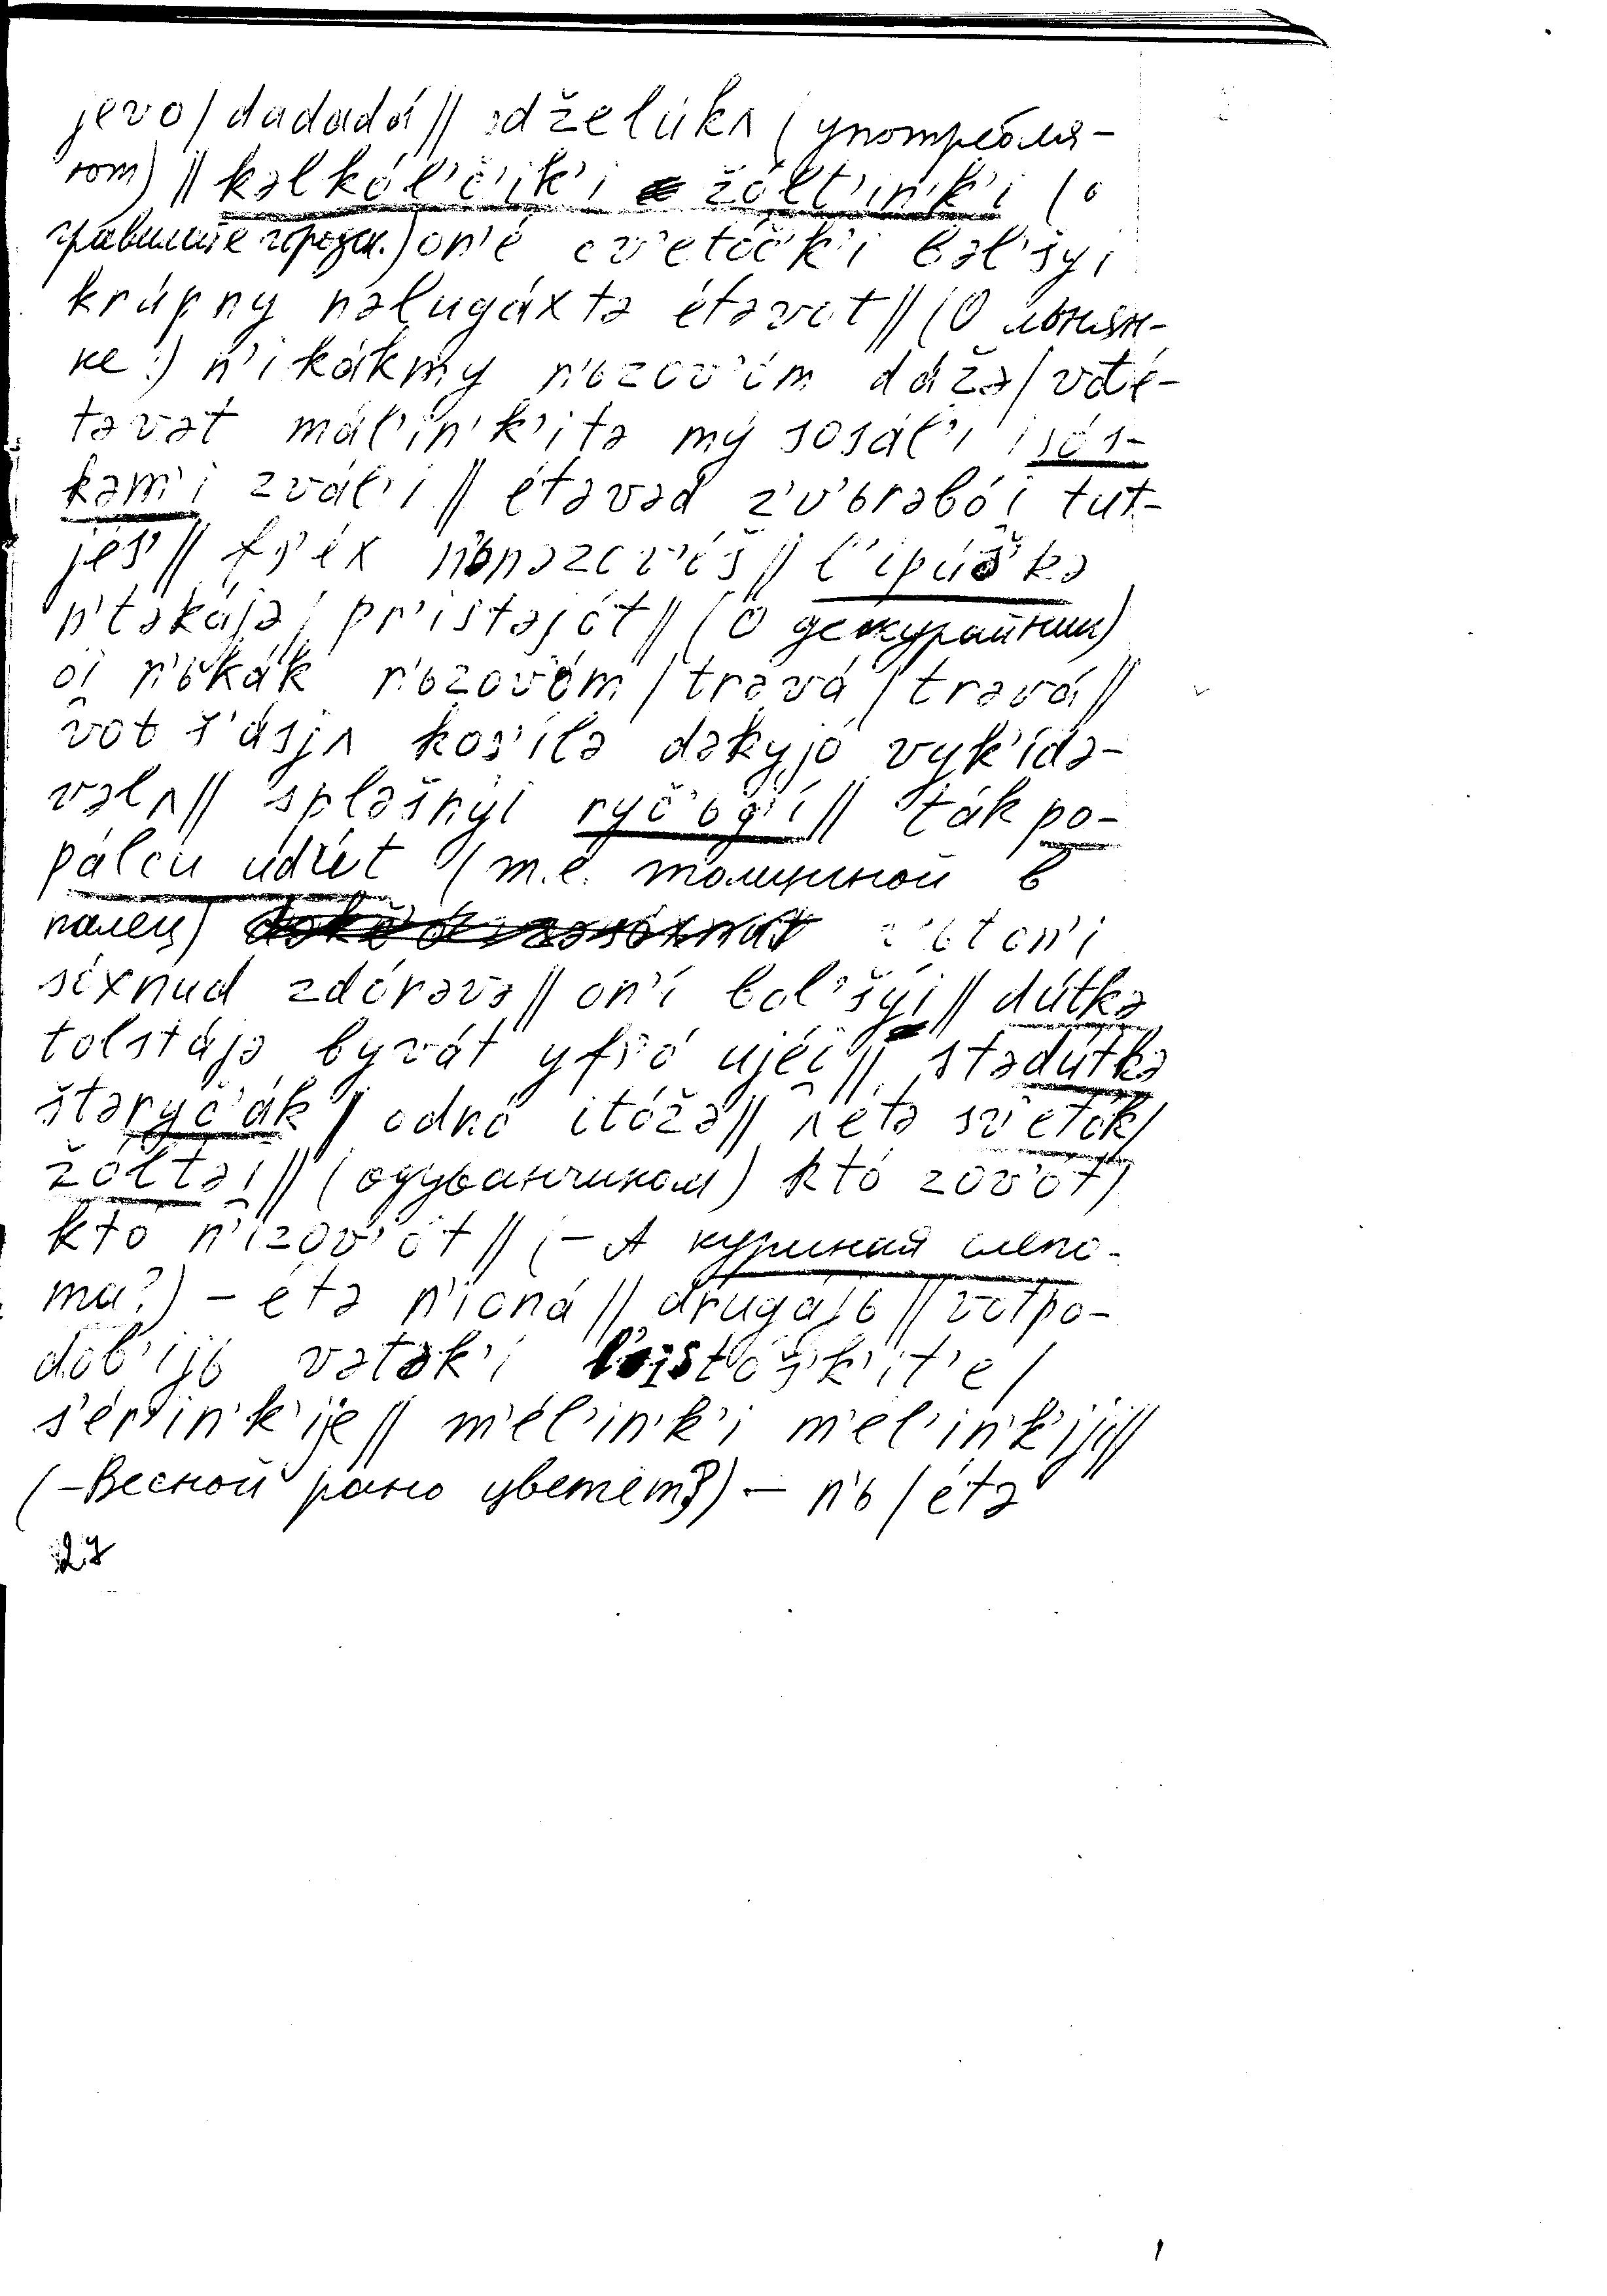 jevo / dadadá // ədželúkʌ ( употребля-
ют) // kəlkól'č'ik'i žólt'in'k'i ( о
гравилате городск.) on'é cv'etóčk'i bəl'šyi
krúpny nəlugáxtə étəvot // (О льнян-
ке:) n'ikákmy n'ьzov'óm dážə / vdé-
təvət mál'in'k'itə mý sosál'i i sós-
kəm'i zvál'i // étəvəd z'v'ьrəbói tut-
jés' // fs'éx n'ьnəzov'óš // l'ipúškə
n'təkájə / pr'istəjót // (О
oi n'ьkák n'ьzov'óm / trəvá / trəvá //
vot š'ásjʌ kos'ílə dəkyjó vyk'ídə-
vəlʌ // spləšnýi ryč'ьg'í // ták po-
pálcu id'út ( т.е. толщиной в
палец) ton'í
sóxnud zdórəvə // on'í bol'šýi // dútkə
tolstájə byvát yfs'ó ujéi // stədútkə
štəryč'ák / odnó itóžə // ʌétə sv'etók /
žóltəi // (одуванчиком) któ zov'ót /
któ n'izov'ót // (– А куриная слепо-
та?) – étə n'ioná // drugájь // votpo-
dób'ijь vətək'í l'istóčk'it'e /
s'ér'in'k'ije // m'él'in'k'i m'él'in'k'iji //
(– Весной рано цветет?) – n'ь / étə
27